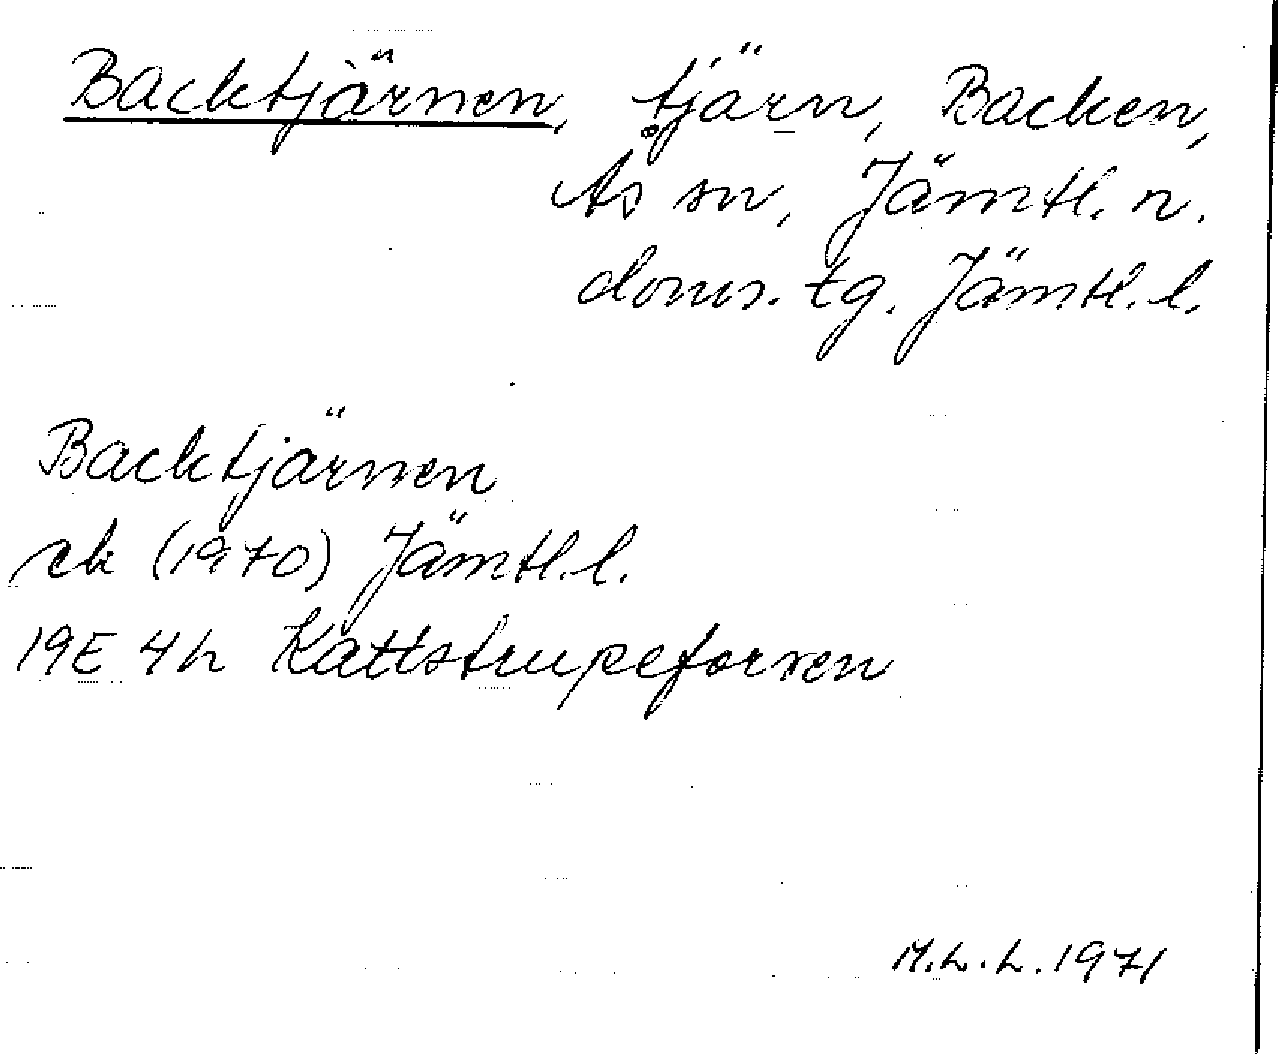 Backtjärnen, tjärn, Backen,
Ås sn, Jämtl. n.
doms. tg. Jämtl. l.
Backtjärnen
ek (1970) Jämtl. l.
19E 4h Kattstrupeforsen
M.L.L. 1971